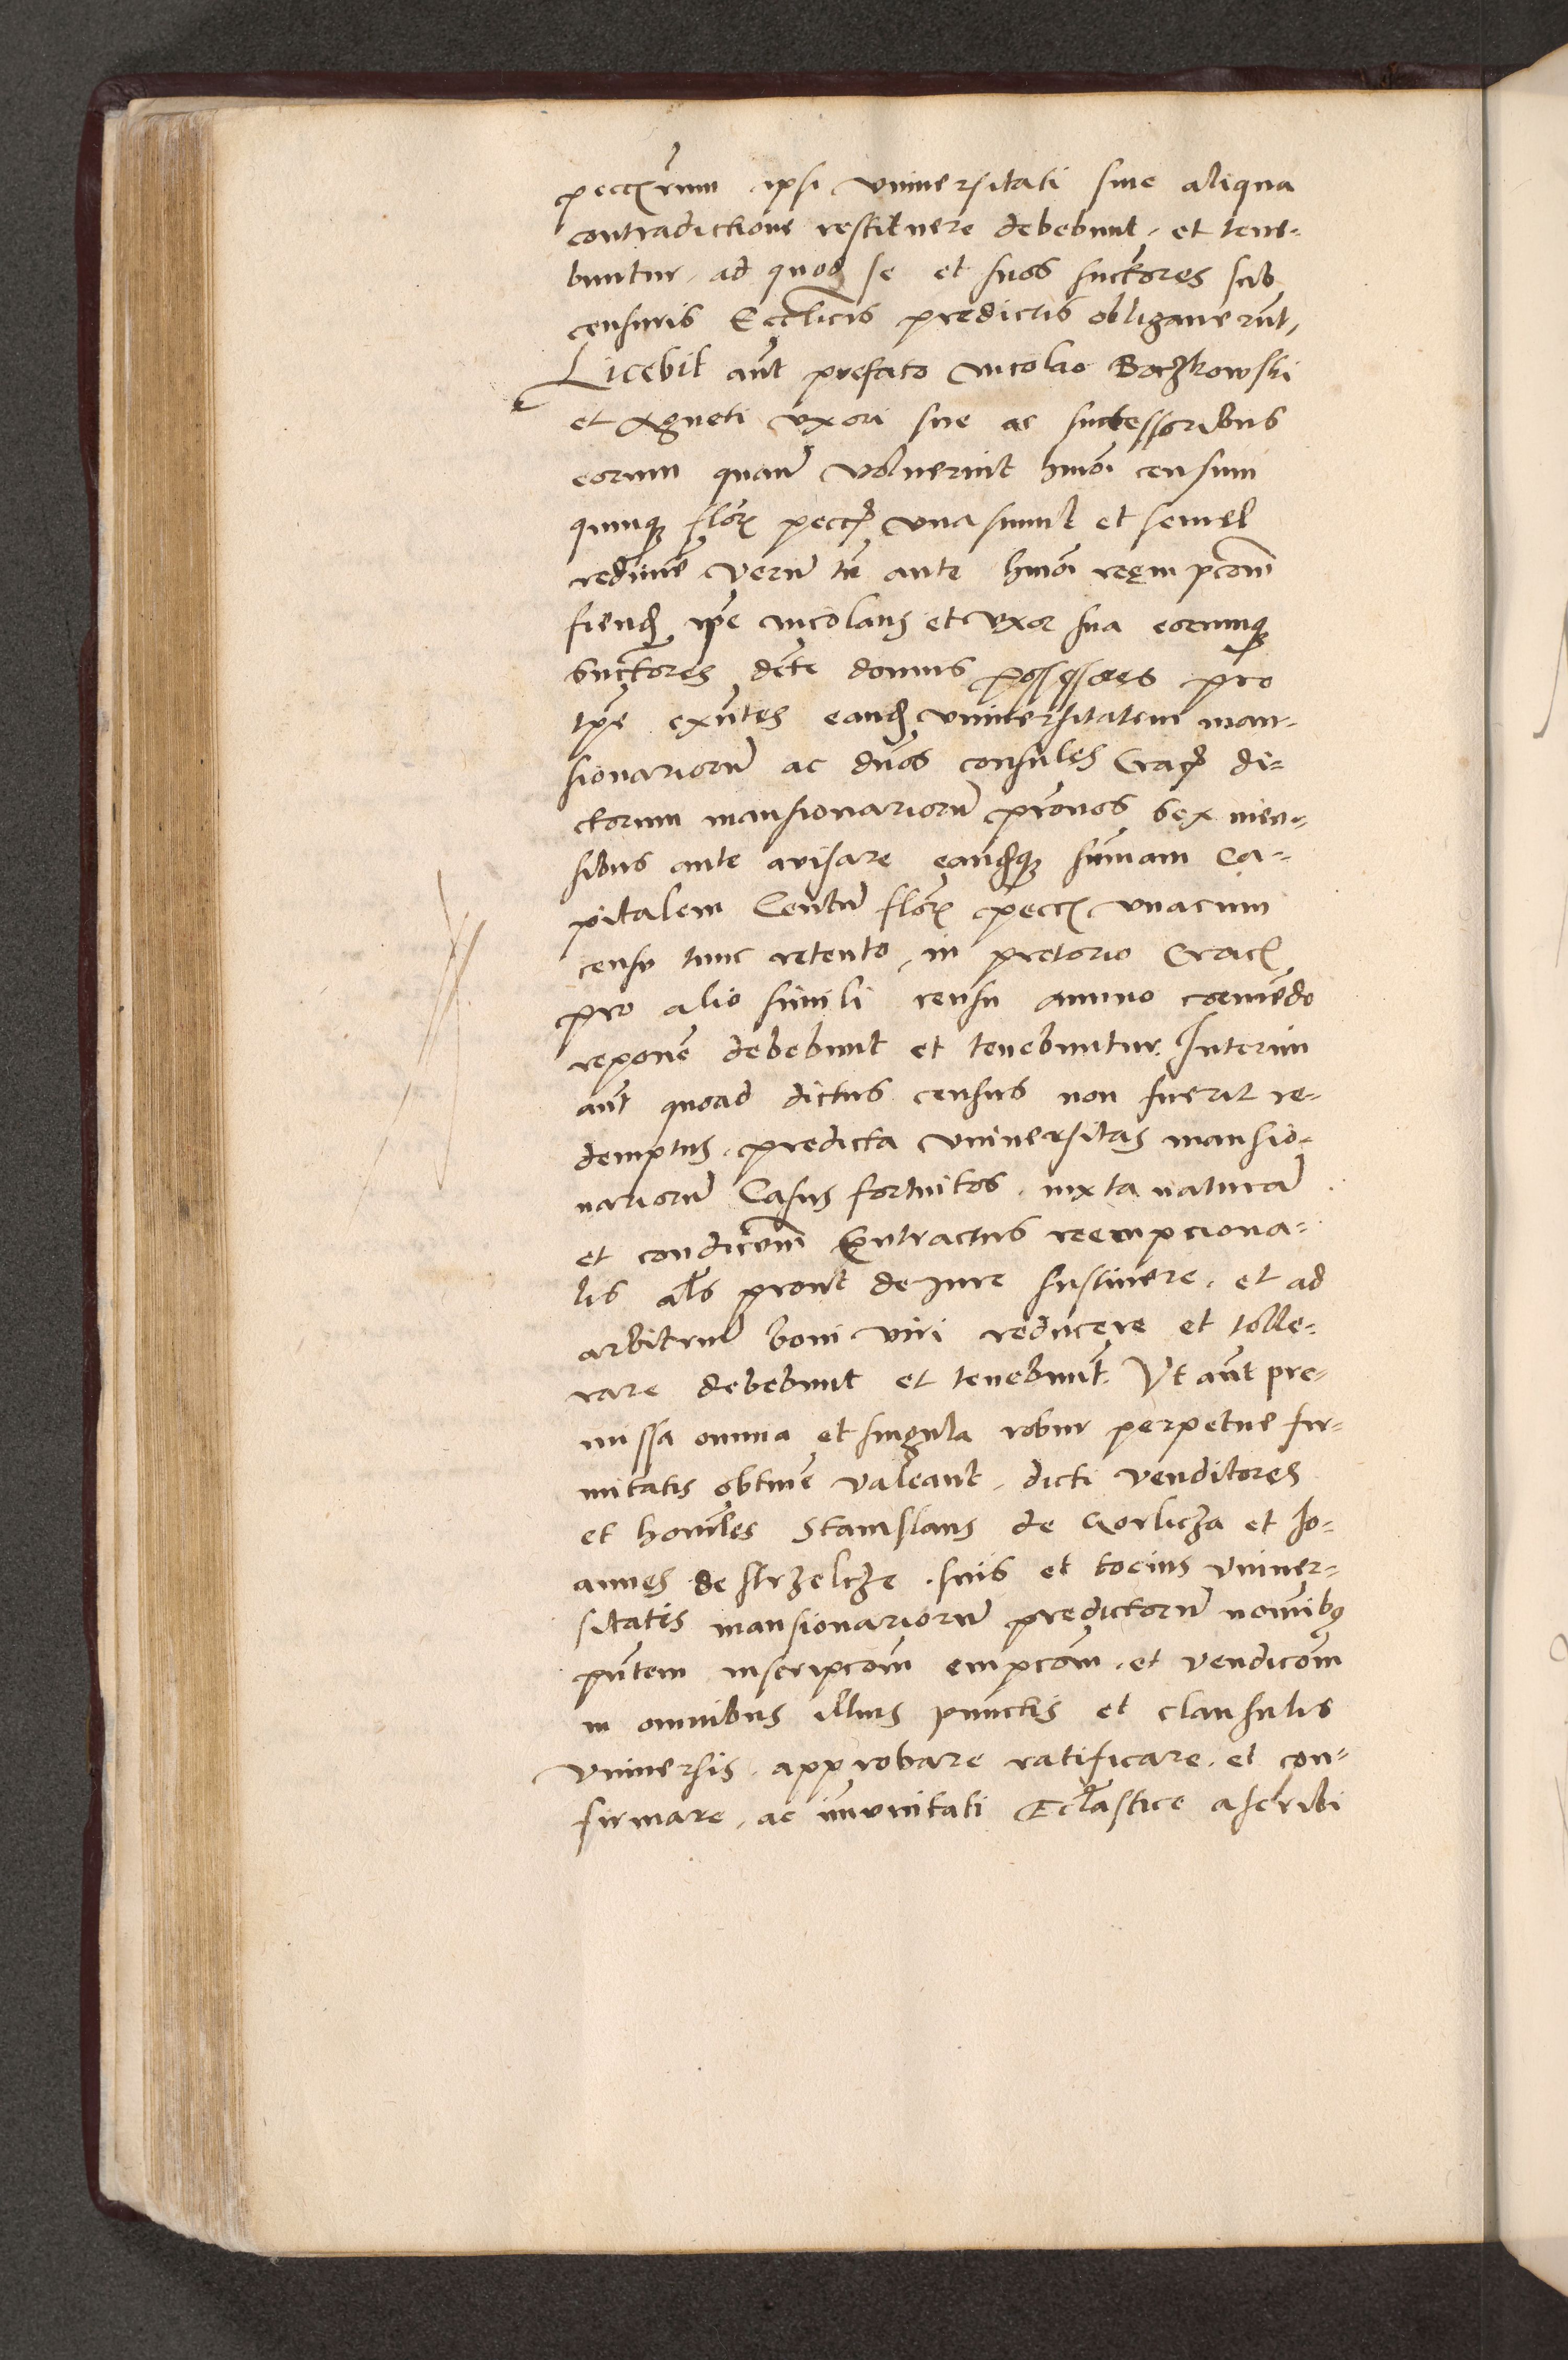 pecc̃rum ipsi vniuersitati sine aliqua
contradictione restituere debebunt, et tene-
buntur, ad quod se et suos succ̃ores sub
censuris Eccl̃icis predictis obligauerũt,
Licebit aũt prefato Nicolao Boczkowski
et Agneti vxori sue ac successoribus
eorum quañ voluerint hmõi censum
quinqʒ flõr pecc̃ vna simul et semel
redimẽ Verũ tñ ante hmõi reẽmpcõm
fiendã ip̃e Nicolaus et vxor sua eorumqʒ
succ̃tores dc̃te domus possessores pro
tp̃e exñtes eandẽ vniuersitatem man-
sionariorũ ac dños consules Crac̃ di-
ctorum mansionariorũ pr̃onos sex men-
sibus ante auisare eandẽqʒ sum̃am Ca-
pitalem Centũ flõr pecc̃ vnacum
censu tunc retento, in pretorio Crac̃
pro alio simili censu annuo coemẽdo
reponẽ debebunt et tenebuntur. Interim
aũt quoad dictus census non fuerit re-
demptus, predicta vniuersitas mansio-
nariorũ Casus fortuitos, iuxta naturã
et condicõem Contractus reempciona-
lis al̃s prout de Iure sustinere, et ad
arbitriũ boni viri reducere et tolle-
rare debebunt et tenebunt̃. Vt aũt pre-
missa omnia et singula robur perpetue fir-
mitatis obtinẽ valeant, dicti venditores
et hon̄les Stanislaus de Gorlicza et Jo-
annes de strzelcze, suis et tocius vniuer-
sitatis mansionariorũ predictorũ nomĩbus
pñtem inscripcõm empcõm, et vendicõm
in omnibus illius punctis et clausulis
vniuersis, approbare ratificare, et con-
firmare, ac im̃unitati Eccl̃astice ascribi